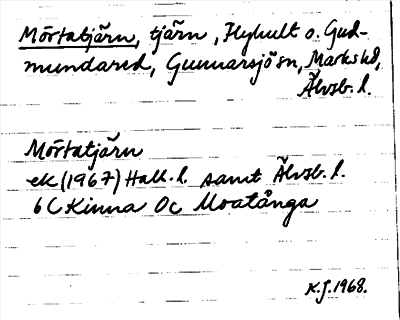 Mörtatjärn, tjärn, Flyhult o. Gud-
mundared, Gunnarsjö sn, Marks hd,
Älvsb. l.
Mörtatjärn
ek (1967) Hall. l. samt Älvsb. l.
6C Kinna 0c Moatånga
K.J. 1968.